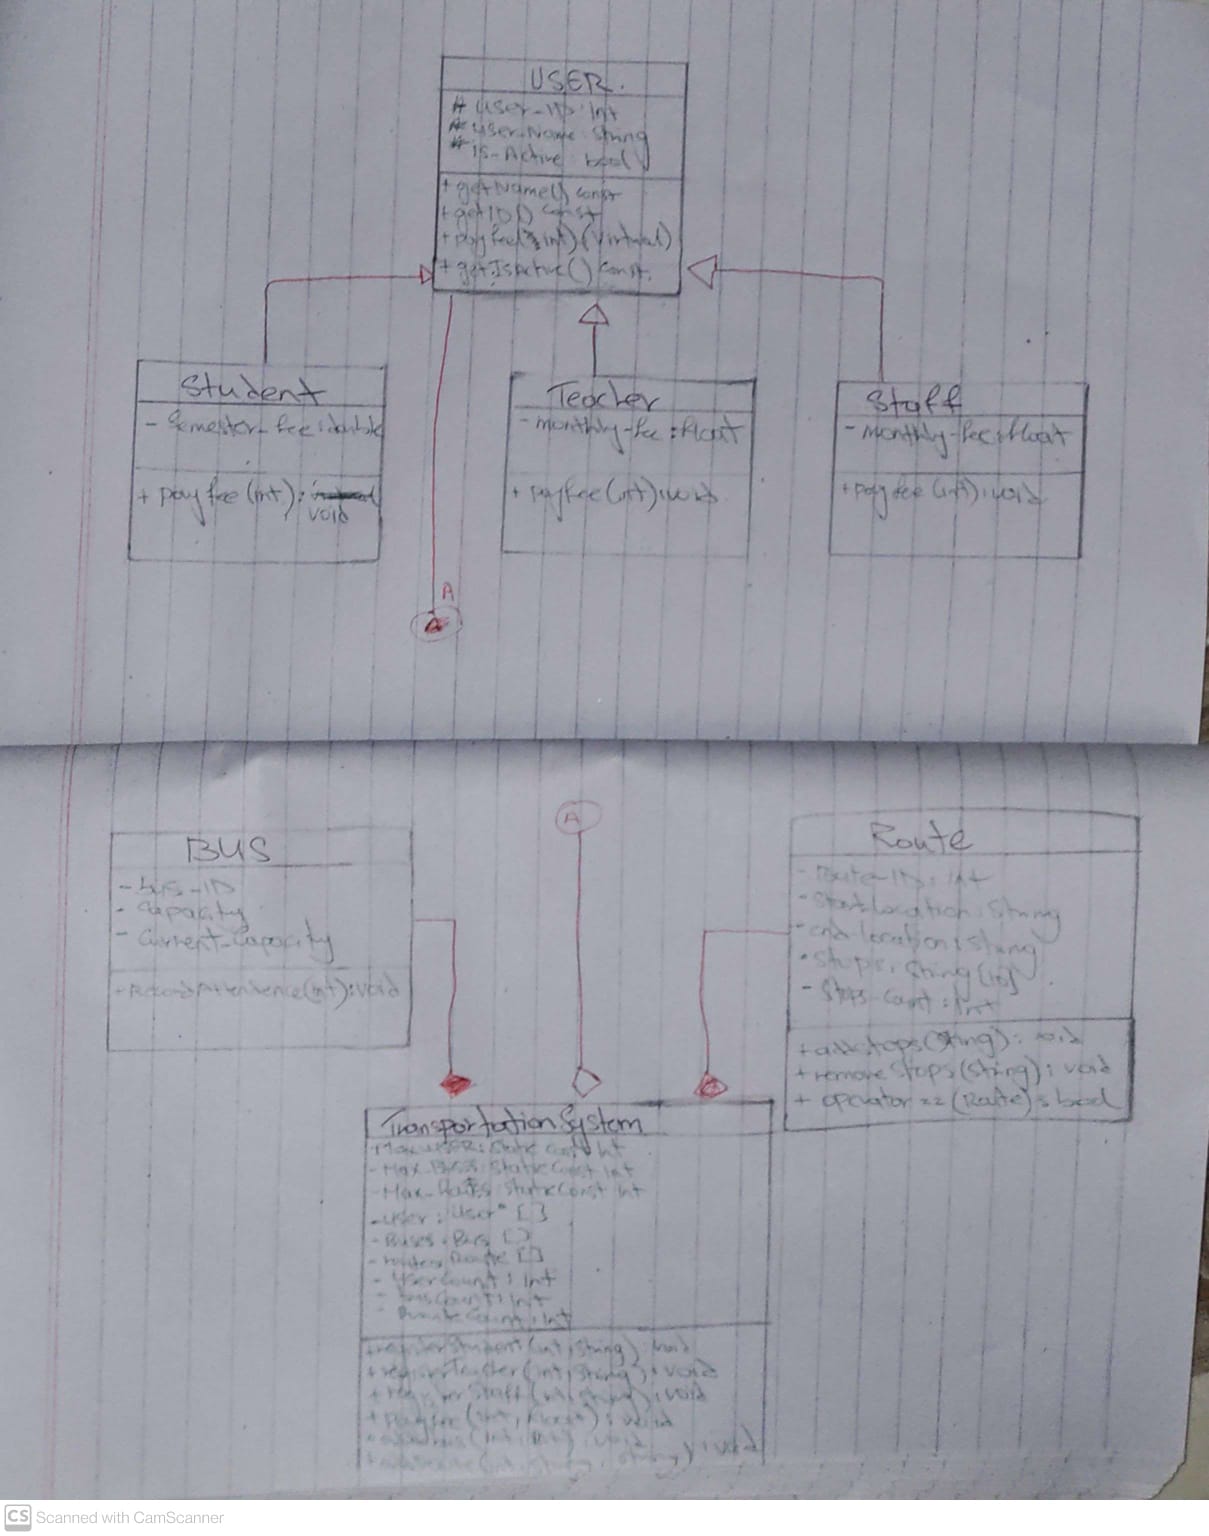 USER.
# User-ID: int
# userName: String
# is-Active: bool
+ getName() const
+ getID() const
+ payfee(int) (virtual)
+ getIsActive() const.
Student
- Semester_fee: double
+ payfee(int):
void
Teacher
- monthly-fee: float
+ payfee(int): void
Staff
- monthly-fee: float
+ payfee(int): void
A
A
BUS
- bus-ID
- Capacity
- Current-Capacity
+ RecordAttendence(int): void
Route
- Route-ID: int
- Start-location: String
- end-location: String
- stops: String[10]
- Stops-Count: int
+ addstops(String): void
+ removeStops(String): void
+ operator ==(Route): bool
TransportationSystem
- Max-USER: Static const int
- Max_Buses: Static Const int
- Max_Routes: Static Const int
- User: User* []
- Buses: Bus []
- routes: Route []
- UserCount: int
- busCount: int
- RouteCount: int
+ registerStudent(int, String): void
+ registerTeacher(int, String): void
+ registerStaff(int, String): void
+ payfee(int, float): void
(int, int): void
(int, String, String): void
CS Scanned with CamScanner